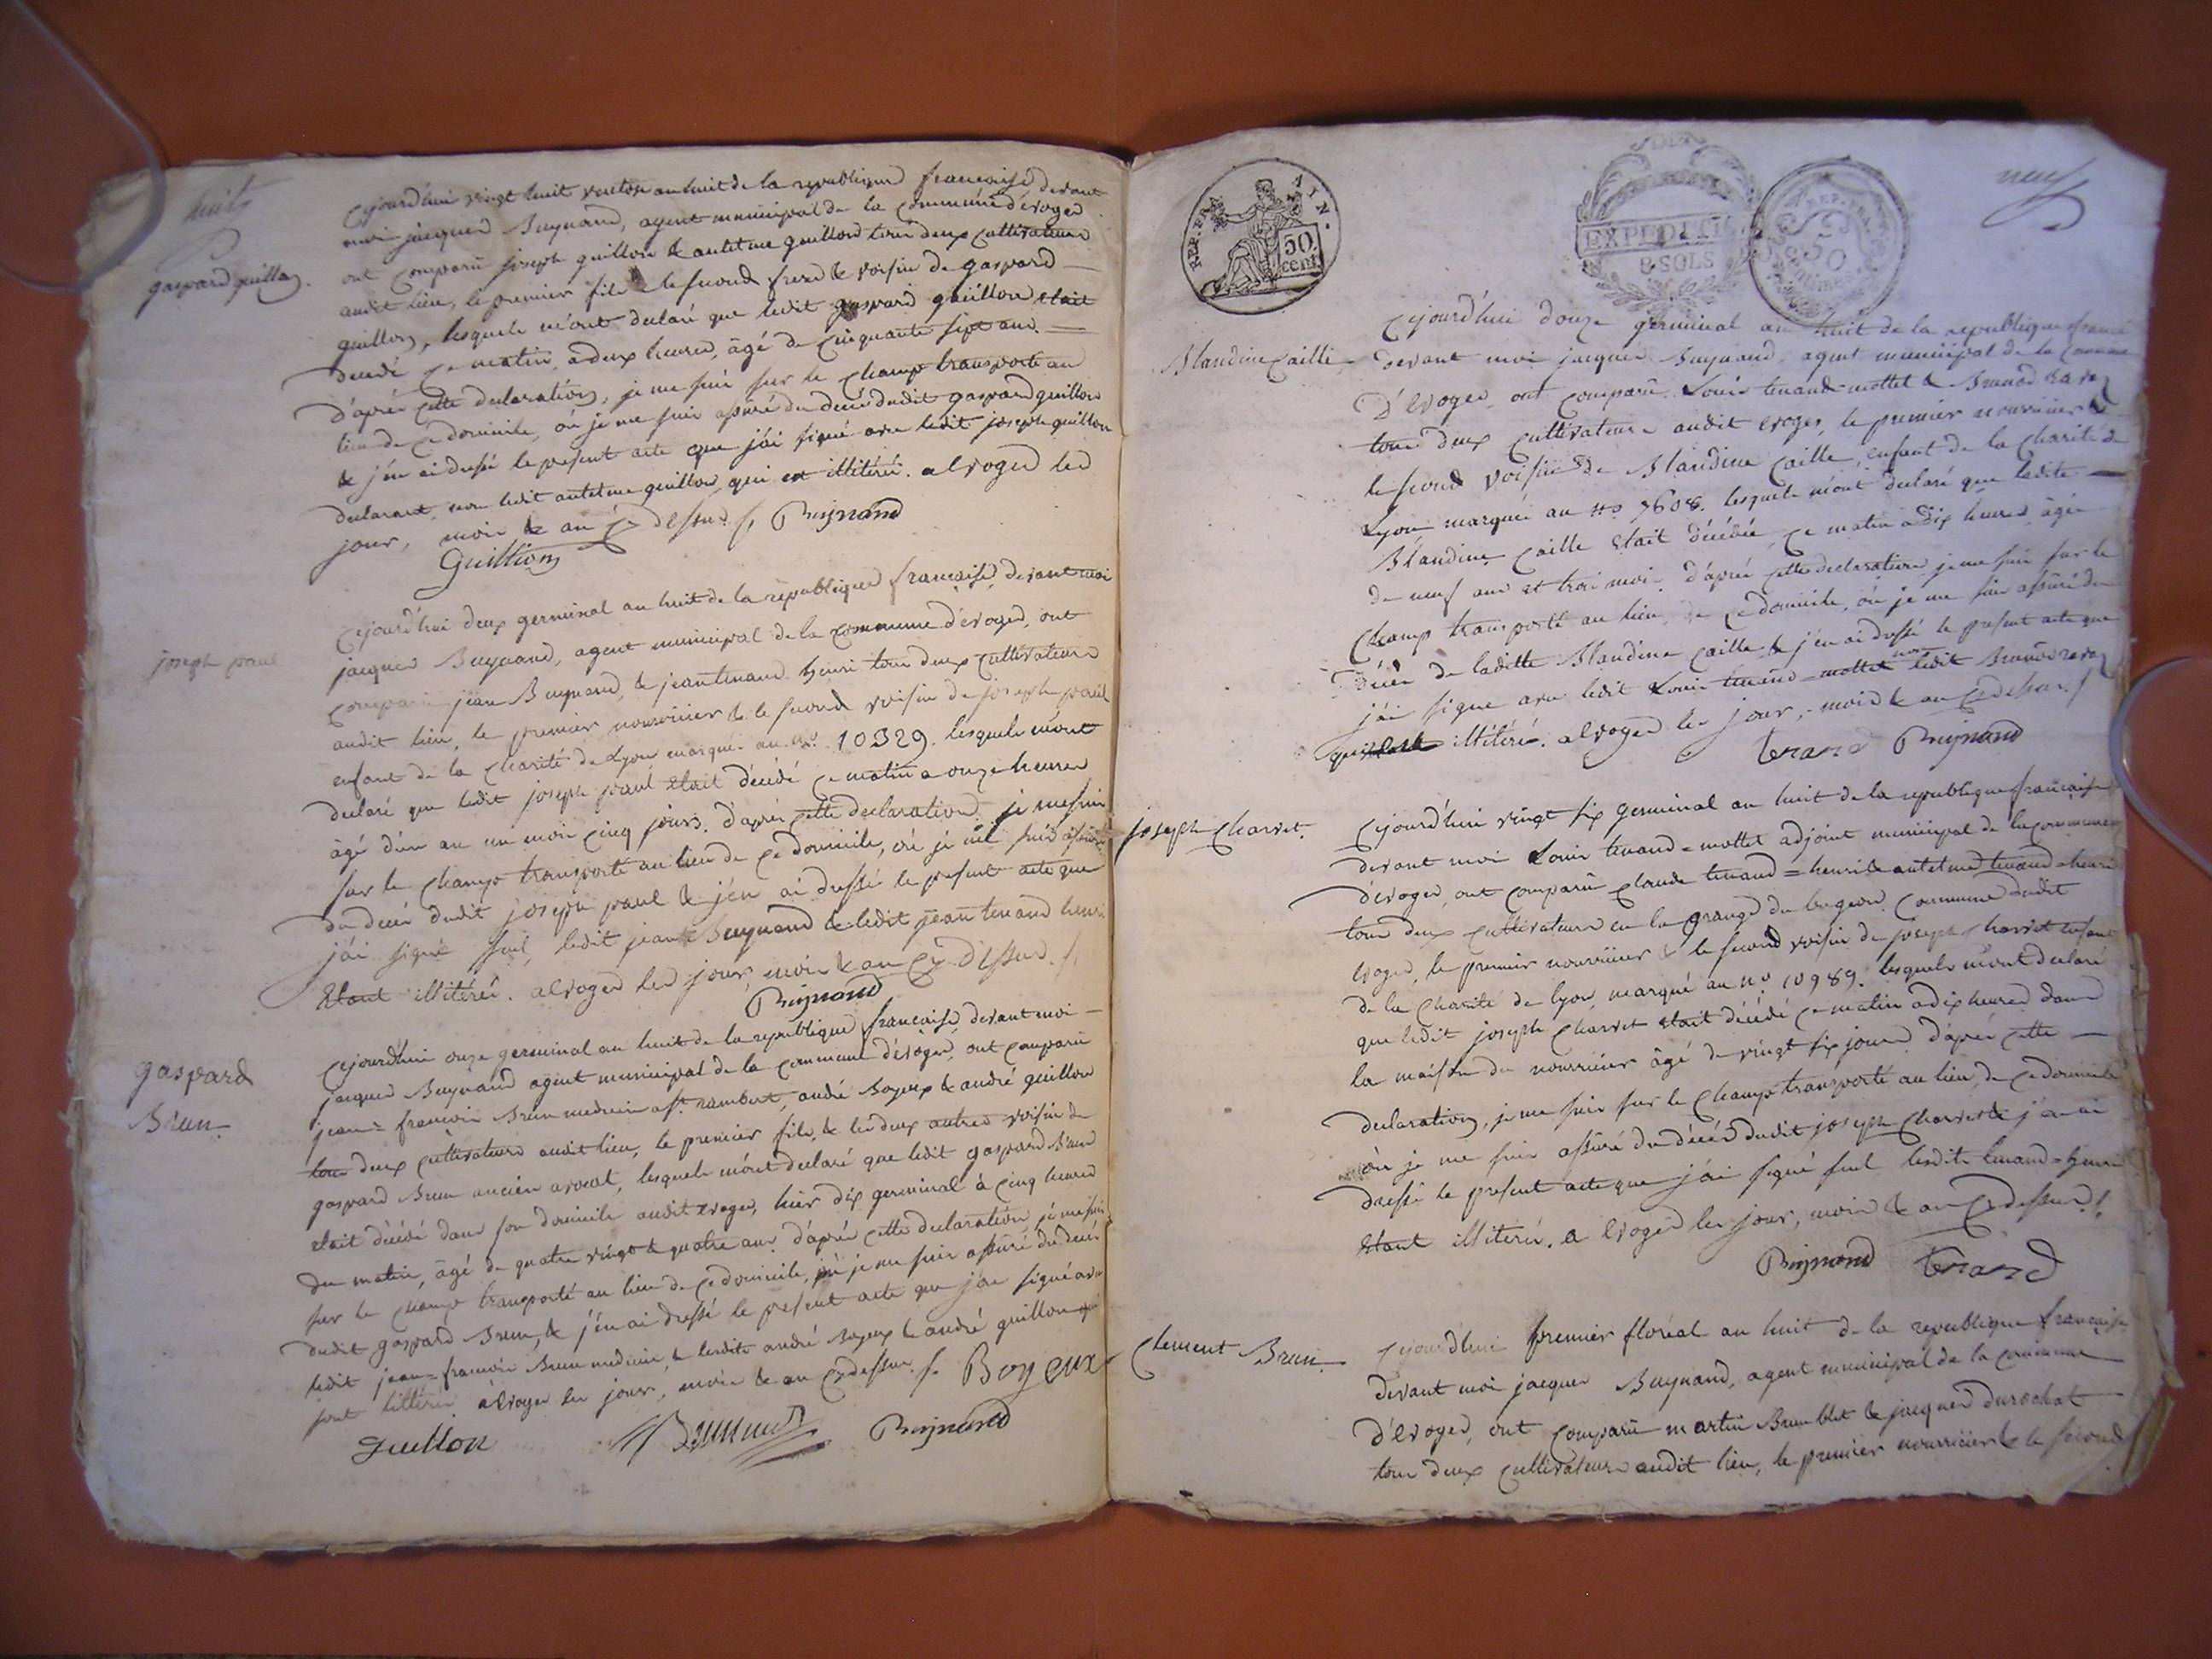 huit
gaspard guillon.
Cejourd'hui vingt huit ventose an huit de la republique francaise devant
moi jacques Buynand, agent municipal de la commune d'évoges
ont comparu joseph guillon & antelme guillon tous deux cultivateurs
audit lieu, le premier fils & le second frere & voisin de gaspard
guillon, lesquels m'ont declaré que ledit gaspard guillon etait
decédé ce matin a deux heures, âgé de cinquante sept ans.
d'après cette declaration, je me suis sur le champ transporté au
lieu de ce domicile, où je me suis assûré du decès dudit gaspard guillon
& j'en ai dressé le present acte que j'ai signé avec ledit joseph guillon
declarant, non ledit antelme guillon qui est illitéré. a Evoges les
jour, mois & an ci dessus /. Buynand
Guillion
joseph paul
Cejourd'hui deux germinal an huit de la republique francaise, devant moi
jacques Buynand, agent municipal de la commune d'évoges, ont
comparu jean Buynand, & jean tenand henri tous deux cultivateurs
audit lieu, le premier nourricier & le second voisin de joseph paul
enfant de la charité de Lyon marqué au no. 10329. lesquels m'ont
declaré que ledit joseph paul etait décédé ce matin a onze heures
âgé d'un an un mois cinq jours. d'après cette declaration je me suis
sur le champ transporté au lieu de ce domicile, où je me suis assûré
du decès dudit joseph paul & j'en ai dressé le present acte que
j'ai signé seul, ledit jean Buynand & ledit jean tenand henri
etant illitérés. a Evoges les jour, mois & an cy dessus. /.
Buynand
gaspard
Brun.
Cejourd'hui onze germinal an huit de la republique francaise devant moi
jacques Buynand agent municipal de la commune d'évoges, ont comparu
jean=francois Brun medecin a St. rambert, andré Boyeux & andré guillon
tous deux cultivateurs audit lieu, le premier fils, & les deux autres voisin de
gaspard Brun ancien avocat, lesquels m'ont declaré que ledit gaspard Brun
etait décédé dans son domicile audit evoges, hier dix germinal à cinq heures
du matin, âgé de quatre vingt & quatre ans. d'après cette declaration, je me suis
sur le champ transporté au lieu de ce domicile, où je me suis assûré du decès
dudit gaspard Brun, & j'en ai dressé le present acte que j'ai signé avec
ledit jean=francois Brun medecin, & lesdits andré Boyeux & andré guillon qui
sont littérés à Evoges les jour, mois & an cy dessus. /. Boyeux
guillon Brun Buynand
neuf
REP. FRA. AIN.
50
cent.
EXPEDITI
8 SOLS
REP. FRA.
50
Centimes
Blandine Caille
Cejourd'hui douze germinal an huit de la republique
devant moi jacques Buynand, agent municipal de la commune
d'Evoges, ont comparu Louis tenand-mottet & Brunod
tous deux cultivateurs audit evoges, le premier nourricier &
le second voisin de Blandine Caille, enfant de la charité de
Lyon marquée au no 7608. lesquels m'ont declaré que ladite
Blandine Caille etait décédée, ce matin a dix heures, âgée
de neuf ans et trois mois. d'après cette declaration je me suis sur le
champ transporté au lieu de ce domicile, où je me suis assûré du
décès de ladite Blandine Caille & j'en ai dressé le present acte que
j'ai signé avec ledit Louis tenand=mottet non ledit
qui illitéré. a Evoges les jour, mois & an cydessus /
tenand Buynand
joseph Charvet.
Cejourd'hui vingt six germinal an huit de la republique francaise
devant moi Louis tenand=mottet adjoint municipal de la commune
d'évoges, ont comparu claude tenand=henri & antelme tenand=henri
tous deux cultivateurs en la grange du commune dudit
Evoges, le premier nourricier & le second voisin de joseph charvet enfant
de la charité de lyon, marqué au no 10989. lesquels m'ont declaré
que ledit joseph Charvet etait décédé ce matin a dix heures dans
la maison du nourricier âgé de vingt six jours. d'après cette
declaration, je me suis sur le champ transporté au lieu, de ce domicile
où je me suis assûré du décès dudit joseph Charvet & j'en ai
dressé le present acte que j'ai signé seul lesdits tenand=henri
etant illitérés. a Evoges les jour, mois & an cydessus /.
Buynand tenand
Clement Brun
Cejourd'hui premier floréal an huit de la republique francaise
devant moi jacques Buynand, agent municipal de la commune
d'Evoges, ont comparu martin Brun blet & jacques durochat
tous deux cultivateurs audit lieu, le premier nourricier & le second